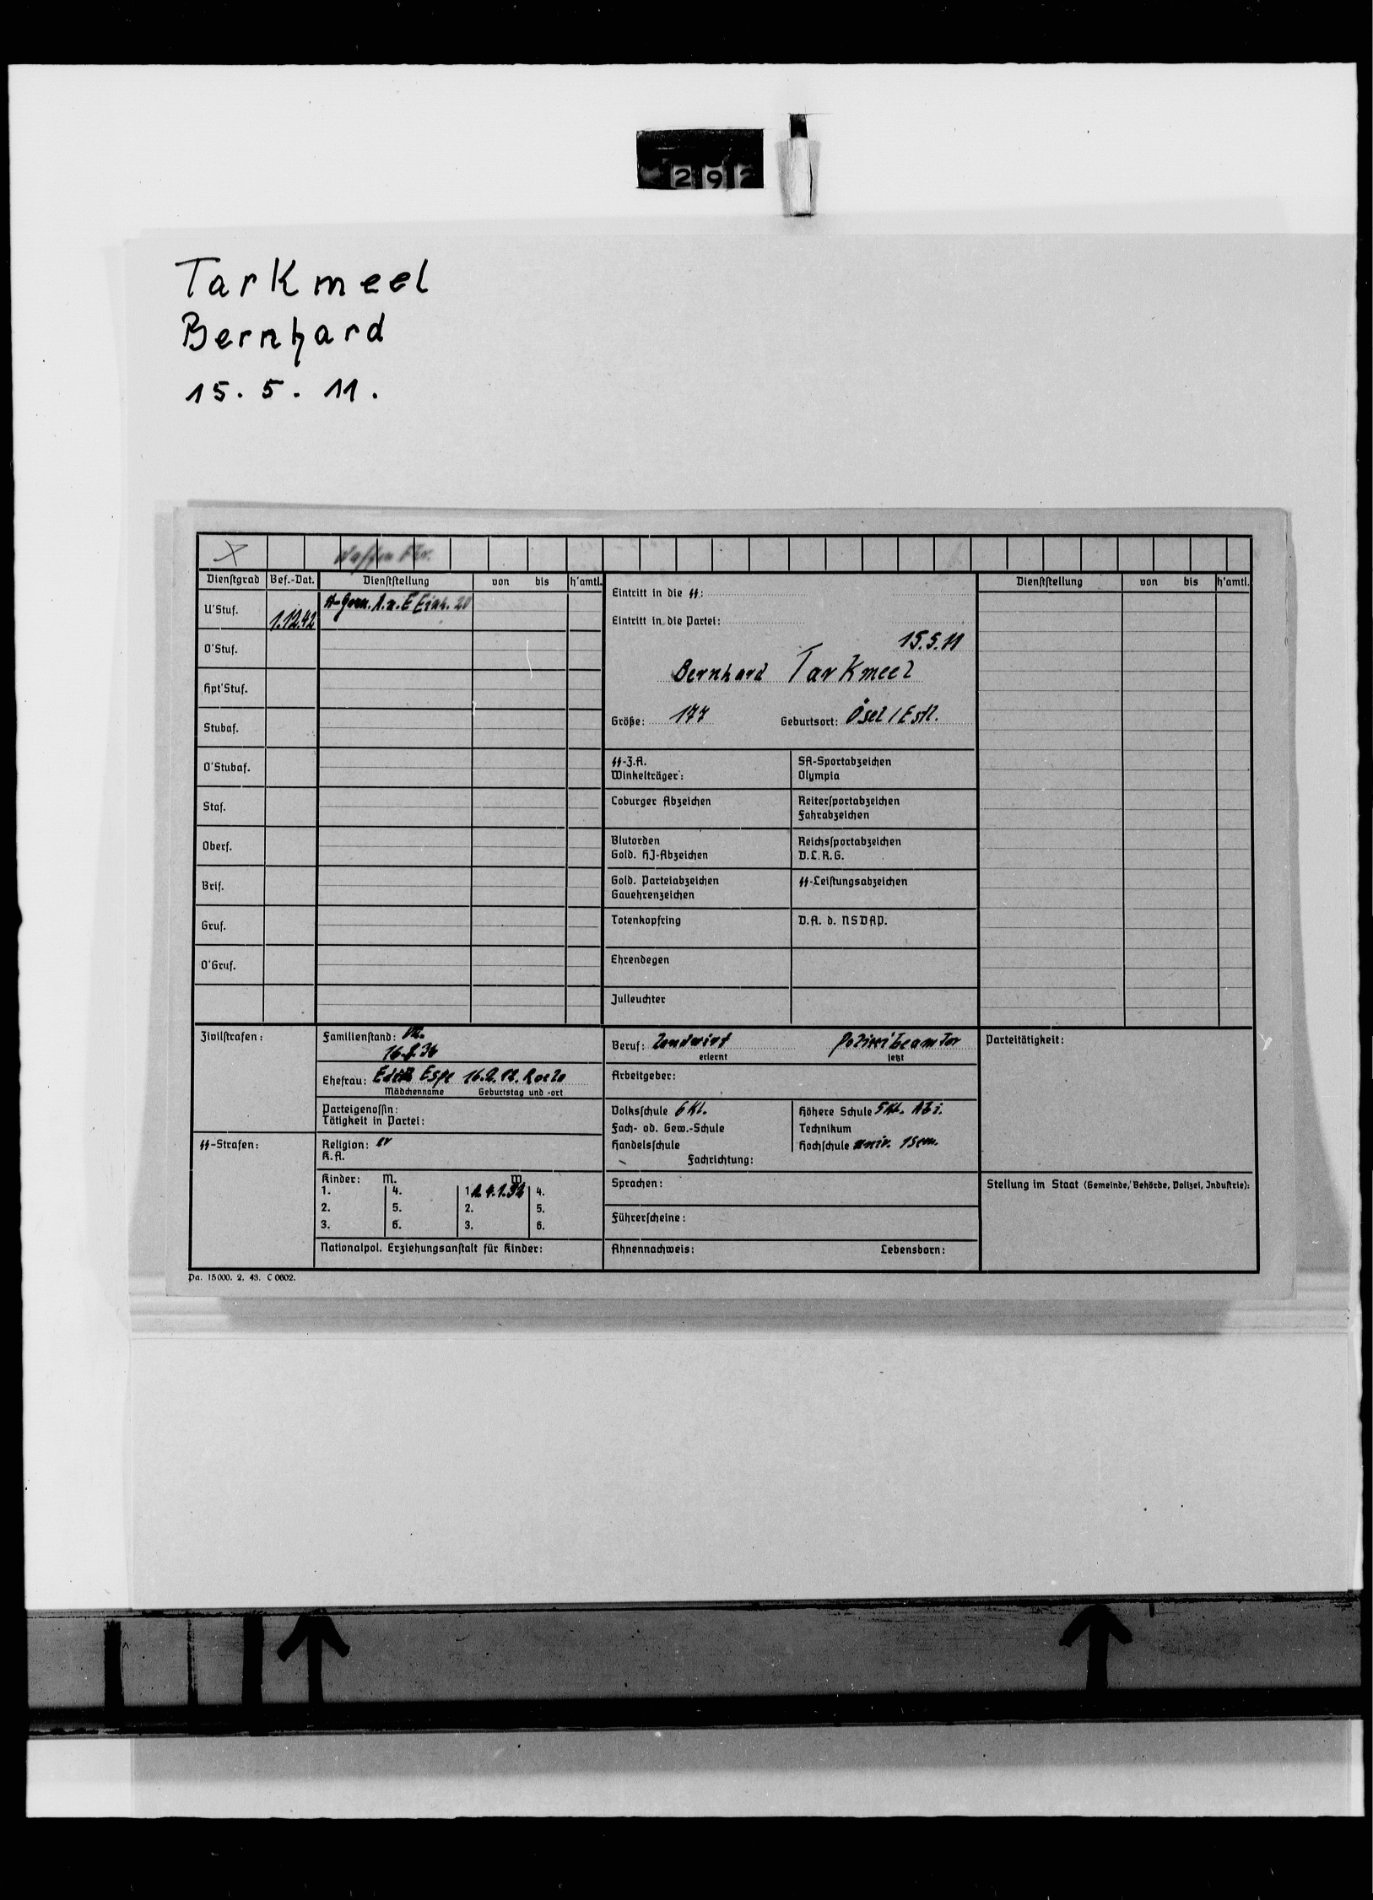 292
Tarkmeel
Bernhard
15. 5. 11.
Dienstgrad Bef.-Dat. Dienststellung von bis h'amtl.
U'Stuf. 1.12.42
O'Stuf.
Hpt'Stuf.
Stubaf.
O'Stubaf.
Staf.
Oberf.
Brif.
Gruf.
O'Gruf.
Eintritt in die SS:
Eintritt in die Partei:
15.5.11
Bernhard Tarkmeel
Größe: 177 Geburtsort: Ösel / Estl.
SS-Z.A.
Winkelträger:
SA-Sportabzeichen
Olympia
Coburger Abzeichen
Reitersportabzeichen
Fahrabzeichen
Blutorden
Gold. HJ-Abzeichen
Reichssportabzeichen
D.L.R.G.
Gold. Parteiabzeichen
Gauehrenzeichen
SS-Leistungsabzeichen
Totenkopfring
D.A. d. NSDAP.
Ehrendegen
Julleuchter
Dienststellung von bis h'amtl.
Zivilstrafen:
SS-Strafen:
Familienstand:
Ehefrau: Espe
Mädchenname Geburtstag und -ort
Parteigenossin:
Tätigkeit in Partei:
Religion: ev
K.A.
Kinder: M. W.
1. 4. 1. 4.
2. 5. 2. 5.
3. 6. 3. 6.
Nationalpol. Erziehungsanstalt für Kinder:
Beruf: Landwirt Polizeibeamter
erlernt jetzt
Arbeitgeber:
Volksschule 6 Kl.
Fach- od. Gew.-Schule
Handelsschule
Höhere Schule 5 Kl. Abi.
Technikum
Hochschule Univ. 1 Sem.
Fachrichtung:
Sprachen:
Führerscheine:
Ahnennachweis: Lebensborn:
Parteitätigkeit:
Stellung im Staat (Gemeinde, Behörde, Polizei, Industrie):
Pa. 15000. 2. 43. C 0602.